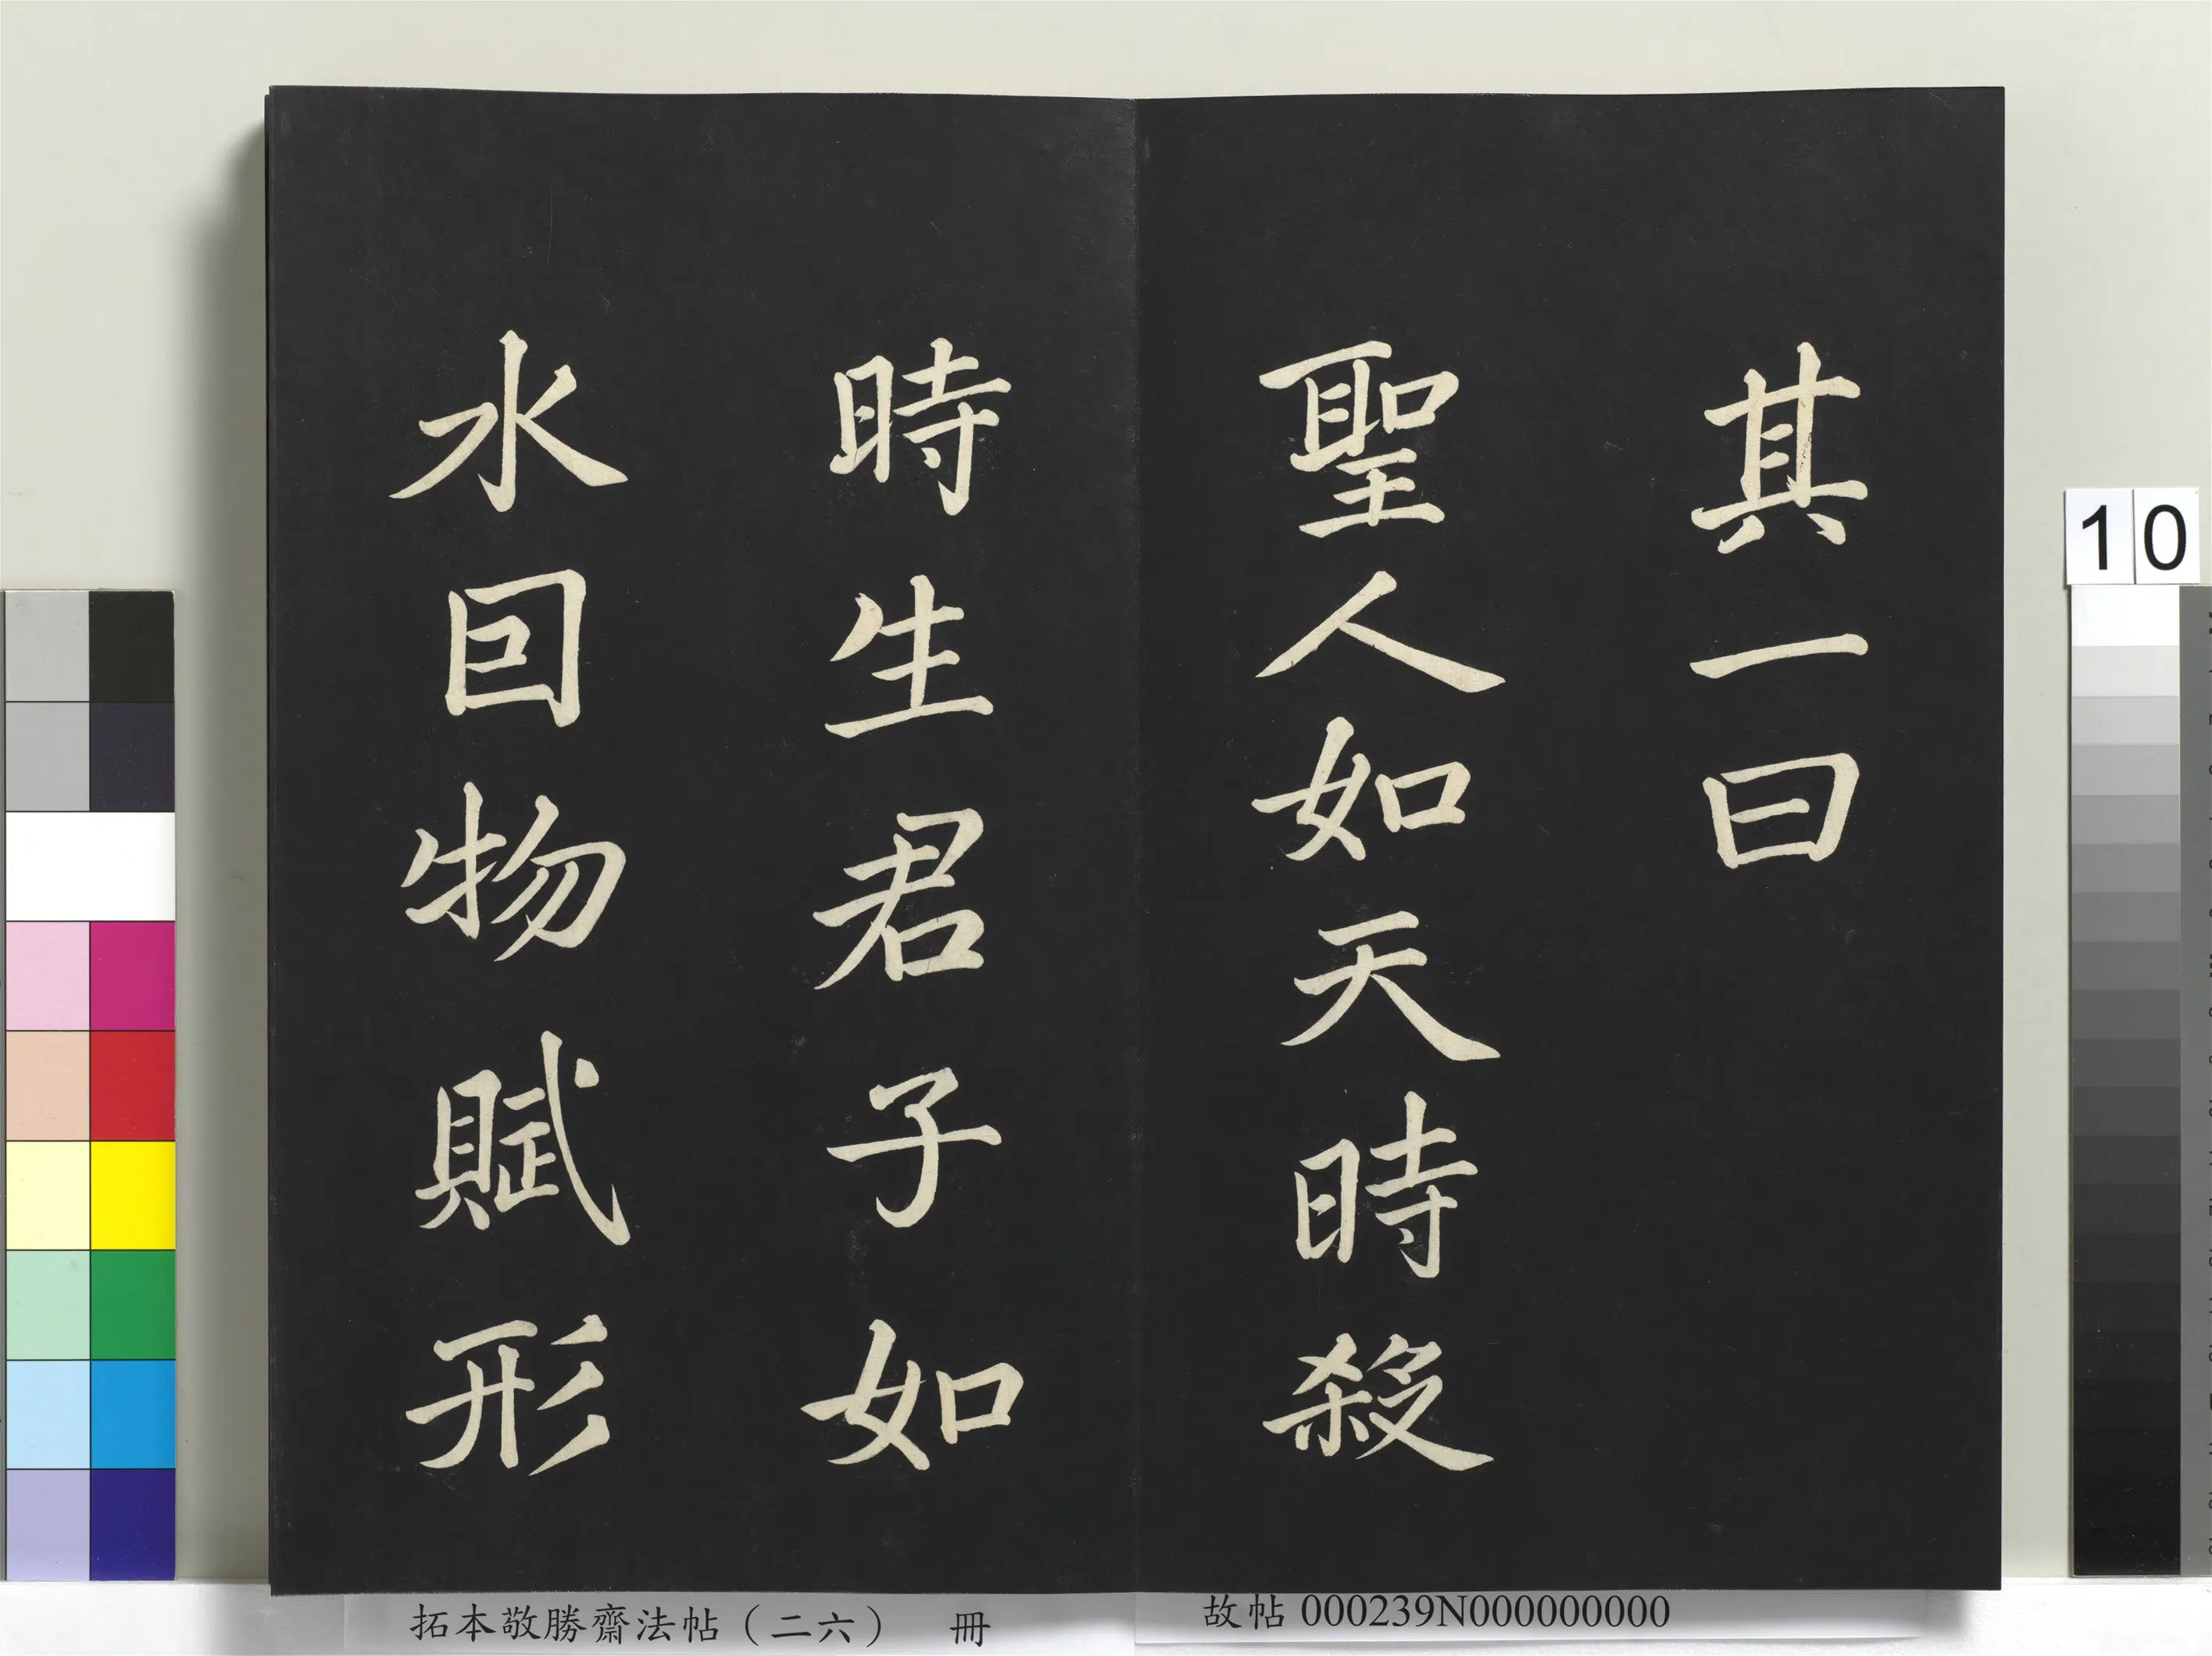 其一曰
聖人如天時殺
時生君子如
水因物賦形
10
拓本敬勝齋法帖（二六） 冊
故帖 000239N000000000